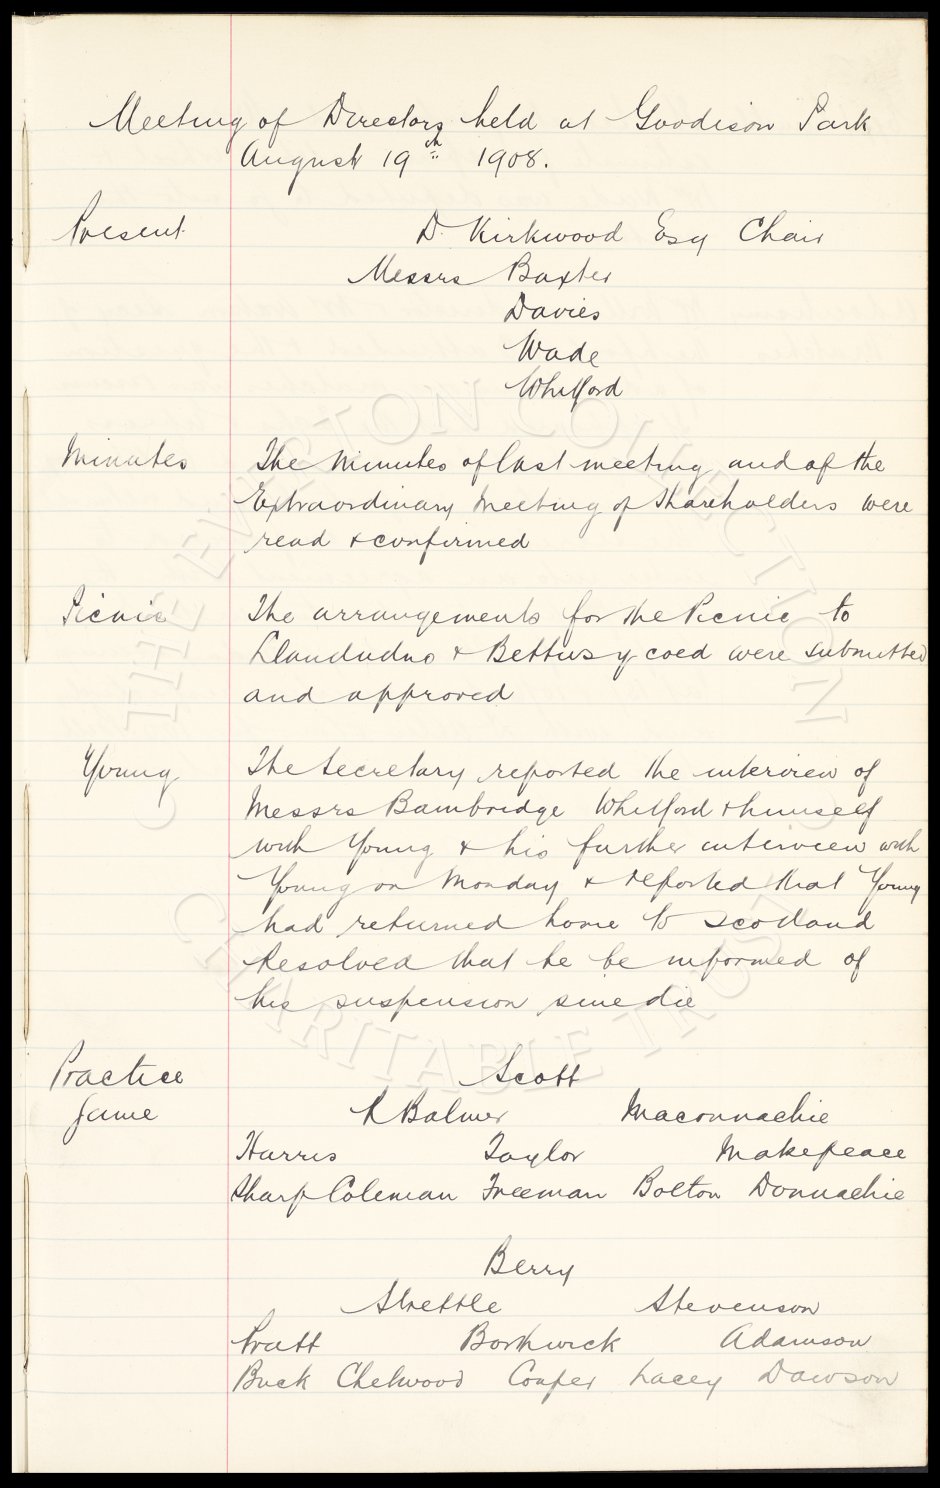 Meeting of Directors held at Goodison Park
August 19th 1908.
Present D. Kirkwood Esq Chair
Messrs Baxter
Davies
Wade
Whitford
Minutes The Minutes of last meeting and of the
Extraordinary Meeting of Shareholders were
read & confirmed
Picnic The arrangements for the Picnic to
Llandudno & Bettws y coed were submitted
and approved
Young The Secretary reported the interview of
Messrs Bainbridge Whitford & himself
with Young & his further interview with
Young on Monday & reported that Young
had returned home to Scotland
Resolved that he be informed of
his suspension sine die
Practice Scott
Game R Balmer Maconnachie
Harris Taylor Makepeace
Sharp Coleman Freeman Bolton Donnachie
Berry
Strettle Stevenson
Pratt Borthwick Adamson
Buck Chetwood Couper Lacey Dawson
THE EVERTON COLLECTION
CHARITABLE TRUST